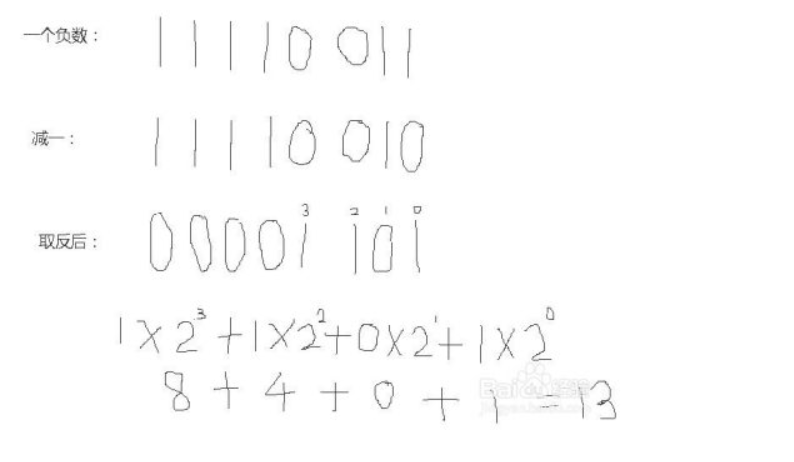 一个负数： 1 1 1 1 0 0 1 1
减一： 1 1 1 1 0 0 1 0
3 2 1 0
取反后： 0 0 0 0 1 1 0 1
1×2³+1×2²+0×2¹+1×2⁰
8+4+0+1=13
Bai 经验
jingyan.baidu.com